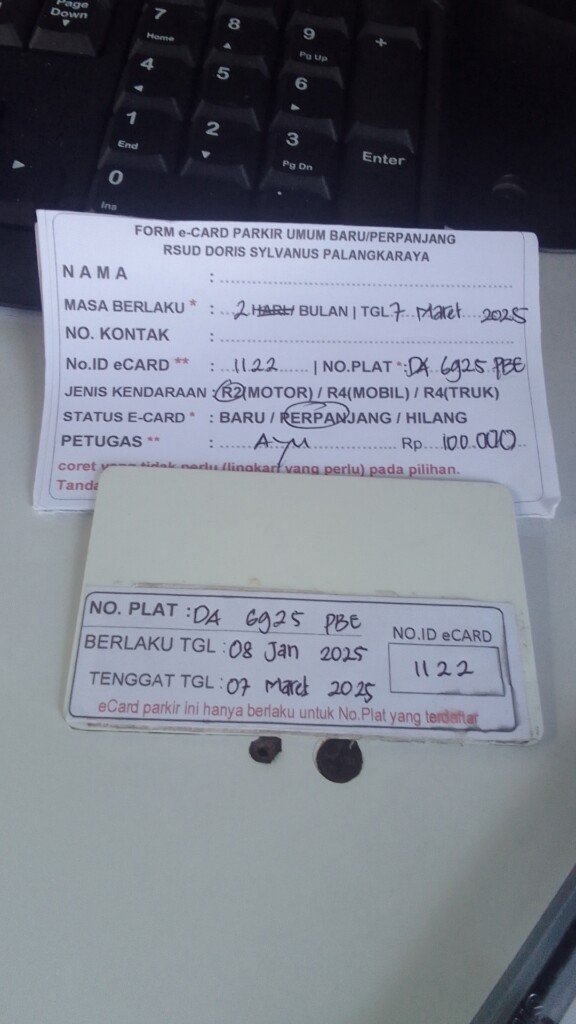 Page
Down
7
Home
8
9
Pg Up
+
4
5
6
1
End
2
3
Pg Dn
Enter
0
Ins
.
FORM e-CARD PARKIR UMUM BARU/PERPANJANG
RSUD DORIS SYLVANUS PALANGKARAYA
NAMA :
MASA BERLAKU * : 2 HARI/ BULAN | TGL 7 Maret 2025
NO. KONTAK :
No.ID eCARD ** : 1122 | NO.PLAT *: DA 6925 PBE
JENIS KENDARAAN : R2(MOTOR) / R4(MOBIL) / R4(TRUK)
STATUS E-CARD * : BARU / PERPANJANG / HILANG
PETUGAS ** : AYU Rp 100.000
coret yang tidak perlu (lingkari yang perlu) pada pilihan.
NO. PLAT : DA 6925 PBE
BERLAKU TGL : 08 Jan 2025
TENGGAT TGL : 07 Maret 2025
NO.ID eCARD
1122
eCard parkir ini hanya berlaku untuk No.Plat yang terdaftar